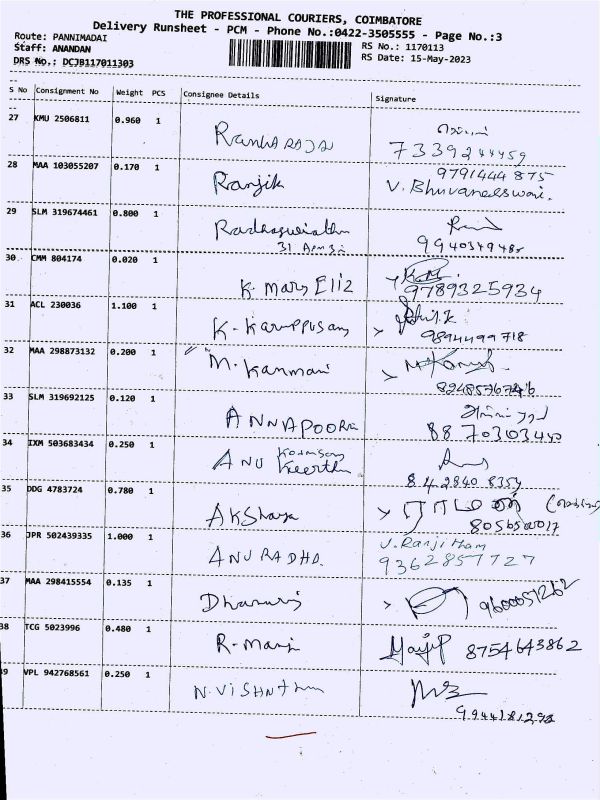 THE PROFESSIONAL COURIERS, COIMBATORE
Delivery Runsheet - PCM - Phone No.:0422-3505555 - Page No.:3
Route: PANNIMADAI RS No.: 1170113
Staff: ANANDAN RS Date: 15-May-2023
DRS No.: DCJB117011303
S No Consignment No Weight PCS Consignee Details Signature
27 KMU 2506811 0.960 1
7339244459
28 MAA 103055207 0.170 1 Ranjik 9791444875
V. Bhuvaneeswari.
29 SLM 319674461 0.800 1
30 CMM 804174 0.020 1 K. Mary Eliz
9789325934
31 ACL 230036 1.100 1 K. Karuppusamy
9894499718
32 MAA 298873132 0.200 1 M. Kanmani
33 SLM 319692125 0.120 1 ANNAPOORA
34 IXM 503683434 0.250 1 ANU Keerthi
35 DDG 4783724 0.780 1 AKShaya
36 JPR 502439335 1.000 1 ANURADHA. V. Ranjitham
9362857727
37 MAA 298415554 0.135 1 Dhanuraj 9600051262
38 TCG 5023996 0.480 1 R. Manj 8754643862
39 VPL 942768561 0.250 1 N. VISHNU